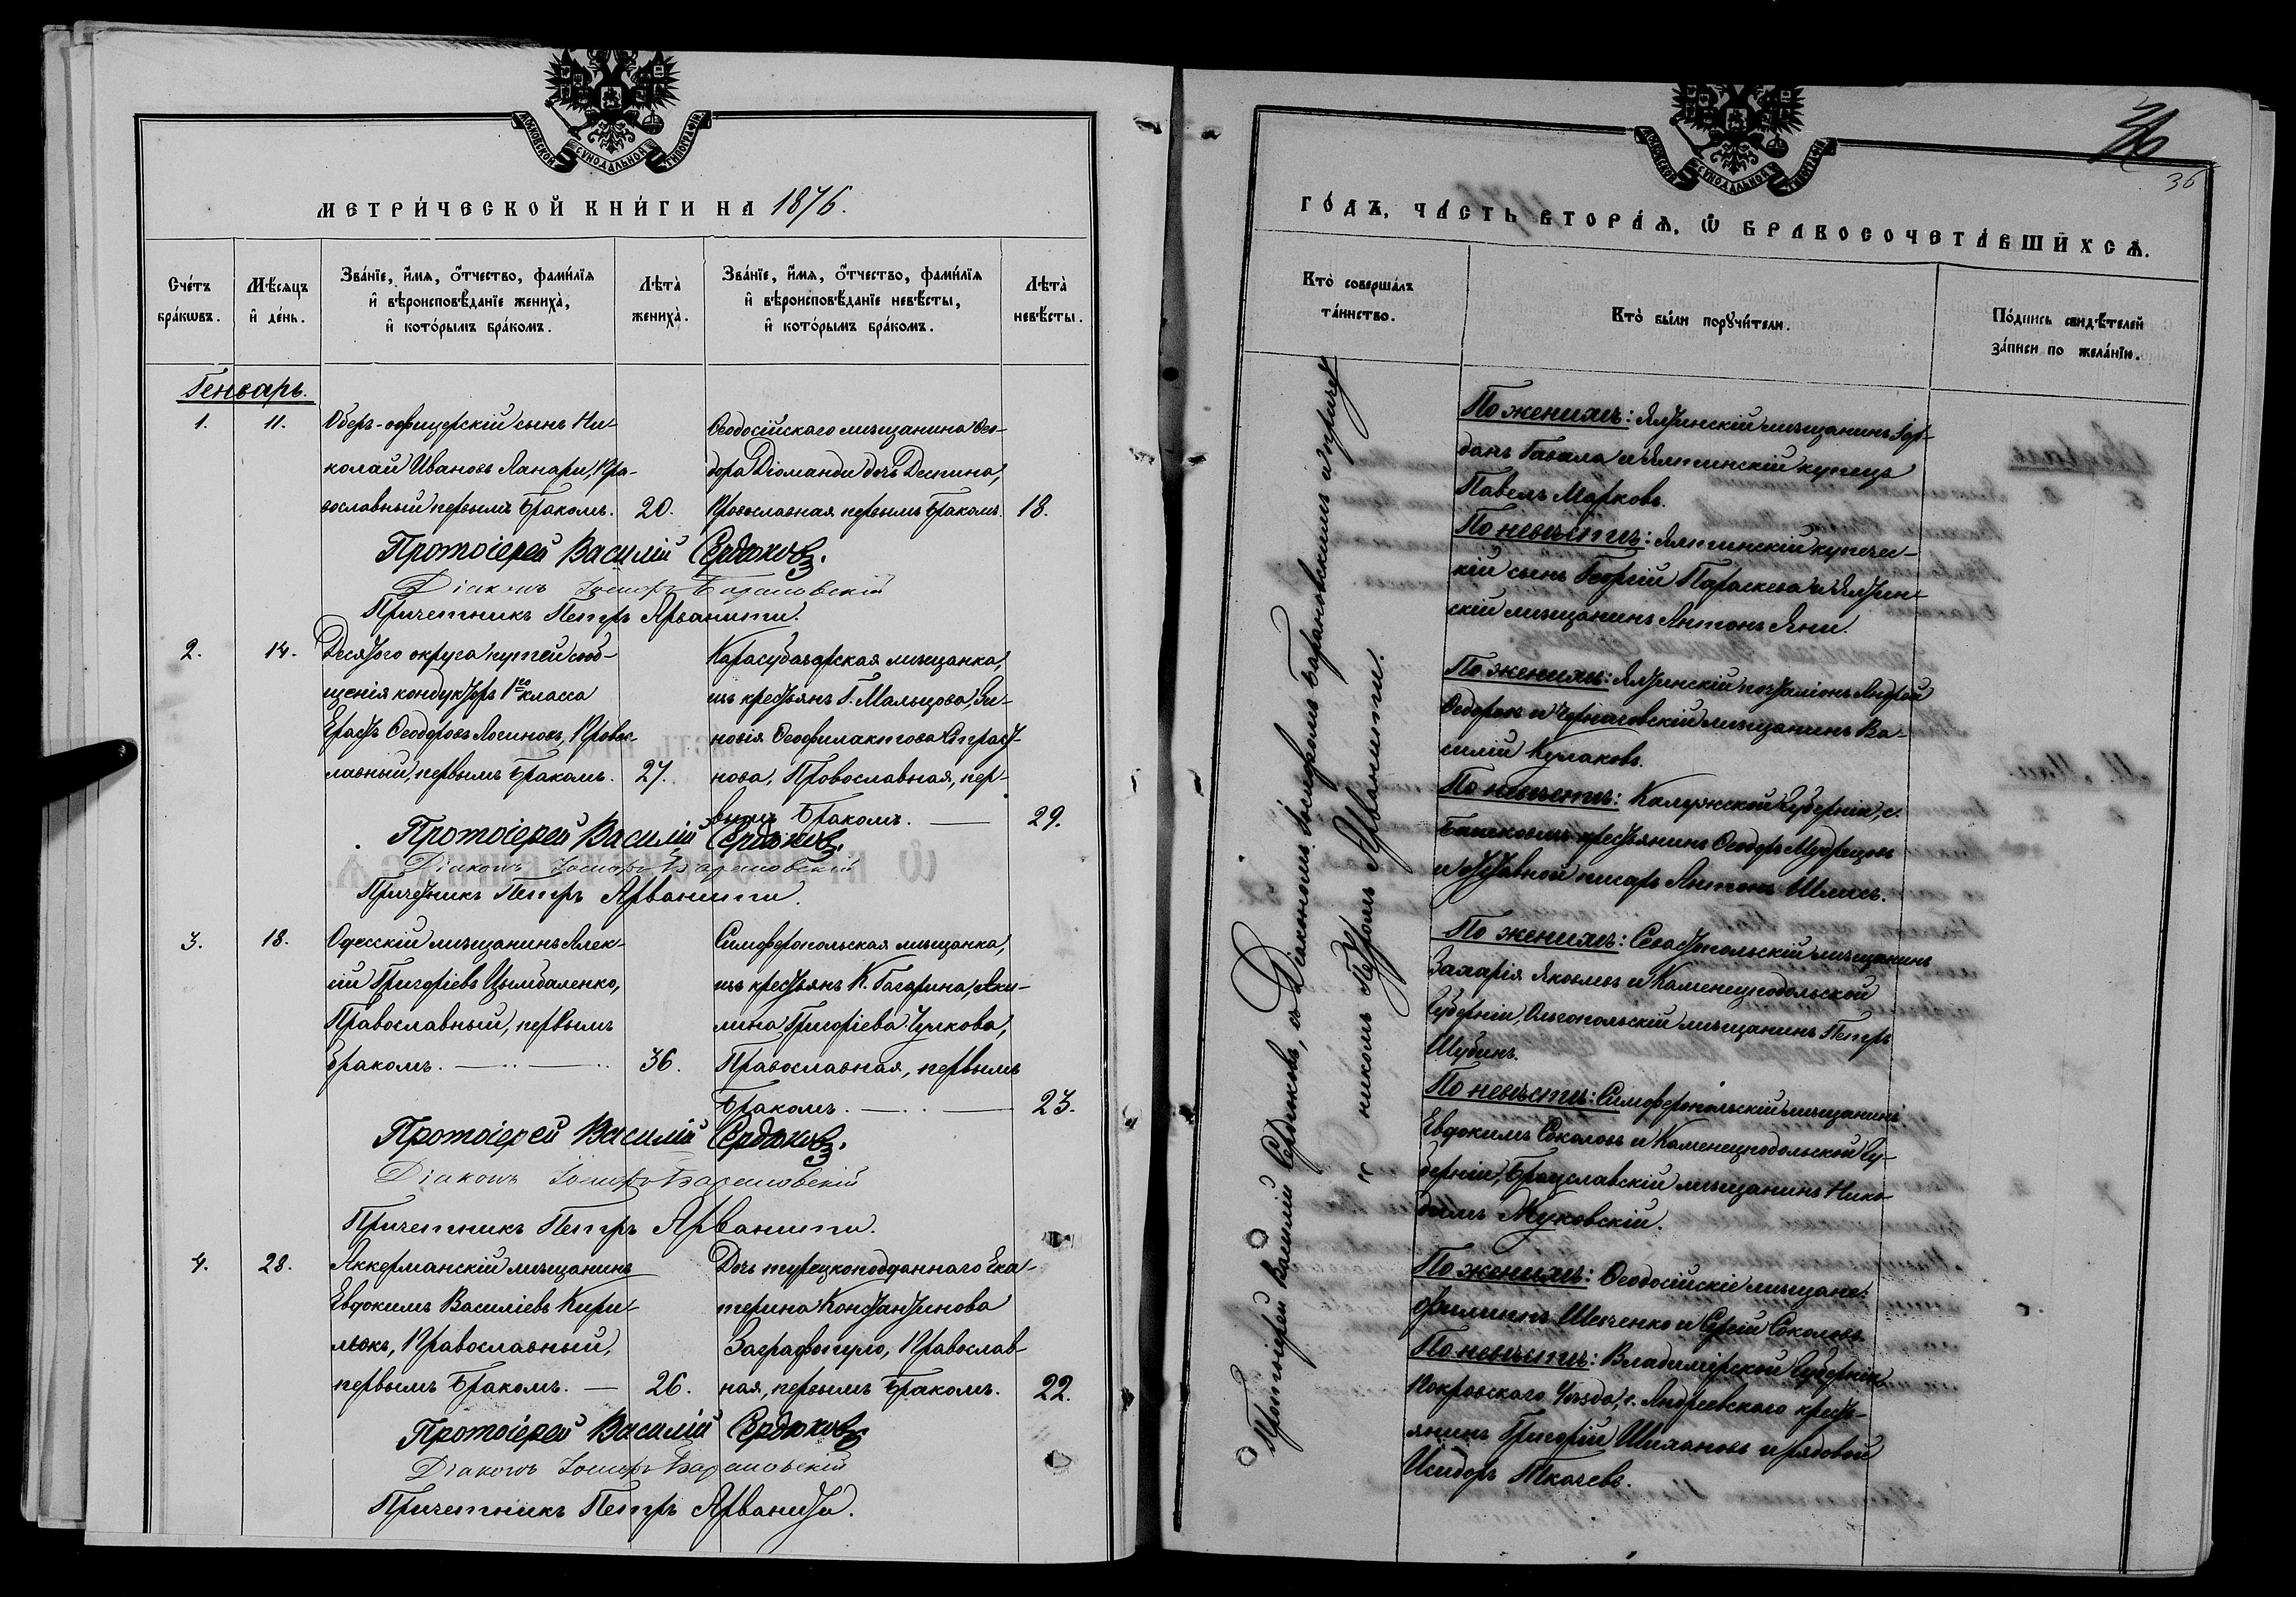 МОСКОВСКОЙ СѴНОДАЛЬНОЙ ТИПОГРАФІИ
МЕТРИ́ЧЕСКОЙ КНИ́ГИ НА 1876.
Сче́тъ бра́кѡвъ.
Мѣ́сяцъ и҆ де́нь.
Зва́нїе, и҆́мя, ѻ҆́тчество, фами́лїя и҆ вѣроисповѣ́данїе жениха̀, и҆ кото́рымъ бра́комъ.
Лѣ́та̀ жениха̀.
Зва́нїе, и҆́мя, ѻ҆́тчество, фами́лїя и҆ вѣроисповѣ́данїе невѣ́сты, и҆ кото́рымъ бра́комъ.
Лѣ́та̀ невѣ́сты.
Генварь.
1. 11.
Оберъ-офицерскій сынъ Ни-
колай Ивановъ Ланари, Пра-
вославный первымъ бракомъ. 20.
Ѳеодосійскаго мѣщанина Ѳео-
дора Діаманди дочь Деспина,
Православная первымъ бракомъ. 18.
Протоіерей Василій Сердюковъ.
Діаконъ Іосифъ Барановскій
Причетникъ Петръ Арванити.
2. 14.
Десятого округа путей сооб-
щенія кондукторъ 1го класса
Ерастъ Ѳеодоровъ Логиновъ, Правос-
лавный, первымъ бракомъ. 27.
Карасубазарская мѣщанка,
изъ крестьянъ Г. Мальцова, Зи-
новія Ѳеофилактова Страст-
нова, Православная, пер-
вымъ бракомъ. 29.
Протоіерей Василій Сердюковъ.
Діаконъ Іосифъ Барановскій
Причетникъ Петръ Арванити.
3. 18.
Одесскій мѣщанинъ Алек-
сій Григоріевъ Цымбаленко,
Православный, первымъ
бракомъ. 36.
Симферопольская мѣщанка,
изъ крестьянъ К. Гагарина, Аки-
лина Григоріева Чулкова,
Православная, первымъ
бракомъ. 23.
Протоіерей Василій Сердюковъ.
Діаконъ Іосифъ Барановскій
Причетникъ Петръ Арванити.
4. 28.
Аккерманскій мѣщанинъ
Евдокимъ Василіевъ Кири-
люкъ, Православный,
первымъ бракомъ. 26.
Дочь турецкоподданнаго Ека-
терина Константинова
Заграфопуло, Православ-
ная, первымъ бракомъ. 22.
Протоіерей Василій Сердюковъ
Діаконъ Іосифъ Барановскій
Причетникъ Петръ Арванити.
МОСКОВСКОЙ СѴНОДАЛЬНОЙ ТИПОГРАФІИ
36
ГО́ДЪ, ЧА́СТЬ ВТОРА́Ѧ, Ѡ҆ БРАКОСОЧЕТА́ВШИХСѦ.
Кто̀ соверша́лъ та́инство.
Кто̀ бы́ли порꙋчи́тели.
По́дпись свидѣ́телей за́писи по жела́нїю.
Протоіерей Василій Сердюковъ, съ Діакономъ Іосифомъ Барановскимъ и причет-
никомъ Петромъ Арванити.
По женихѣ: Ялтинскій мѣщанинъ Іор-
данъ Гавала и Ялтинскій купецъ
Павелъ Марковъ.
По невѣстѣ: Ялтинскій купечес-
кій сынъ Георгій Параскева и Ялтин-
скій мѣщанинъ Антонъ Яни.
По женихѣ: Ялтинскій почталіонъ Андрей
Ѳедоровъ и Черниговскій мѣщанинъ Ва-
силій Кулаковъ.
По невѣстѣ: Калужской Губерніи, с.
крестьянинъ Ѳеодоръ Мудрецовъ
и уставной писарь Антонъ Шлисъ.
По женихѣ: Севастопольскій мѣщанинъ
Захарія Яковлевъ и Каменецподольской
Губерніи, Ольгопольскій мѣщанинъ Петръ
Шубинъ.
По невѣстѣ: Симферопольскій мѣщанинъ
Евдокимъ Соколовъ и Каменецподольской Гу-
берніи, Брацлавскій мѣщанинъ Нико-
димъ Жуковскій.
По женихѣ: Ѳеодосійскіе мѣщане:
Филиппъ Шевченко и Сергій Соколовъ.
По невѣстѣ: Владимірской Губерніи,
Покровскаго Уѣзда, с. Андреевскаго кресть-
янинъ Григорій Шихановъ и рядовой
Исидоръ Ткачевъ.